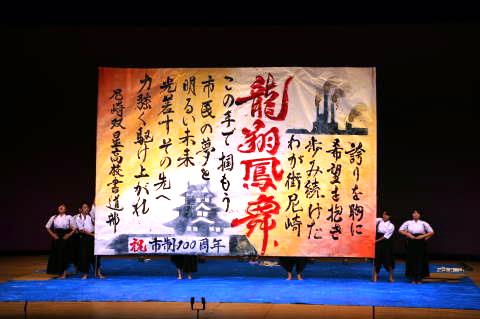 誇りを胸に
希望を抱き
歩み続けた
わが街尼崎
龍翔鳳舞
この手で掴もう
市民の夢を
明るい未来
光差すその先へ
力強く駆け上がれ
尼崎双星高校書道部
祝 市制100周年